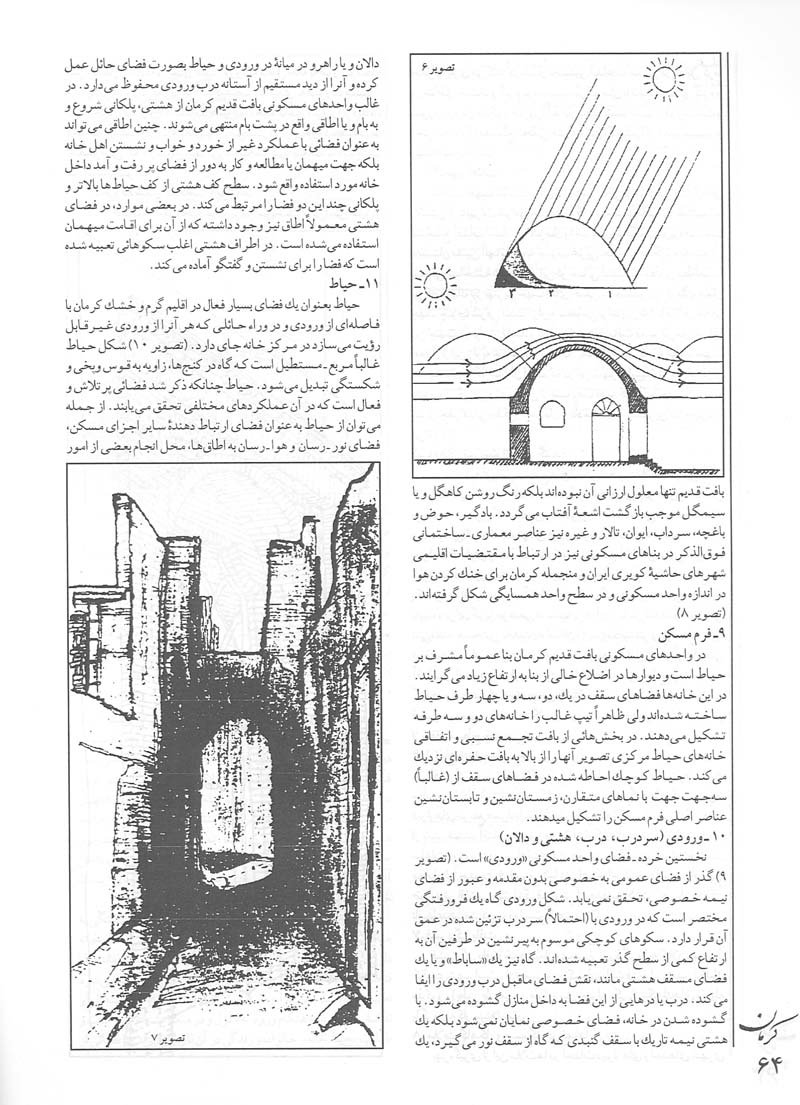 تصویر ۶
بافت قدیم تنها معلول ارزانی آن نبوده‌اند بلکه رنگ روشن کاهگل و یا
سیمگل موجب بازگشت اشعهٔ آفتاب می‌گردد. بادگیر، حوض و
باغچه، سرداب، ایوان، تالار و غیره نیز عناصر معماری ـ ساختمانی
فوق‌الذکر در بناهای مسکونی نیز در ارتباط با مقتضیات اقلیمی
شهرهای حاشیهٔ کویری ایران و منجمله کرمان برای خنك کردن هوا
در اندازه واحد مسکونی و در سطح واحد همسایگی شکل گرفته‌اند.
(تصویر ۸)
۹ـ فرم مسکن
در واحدهای مسکونی بافت قدیم کرمان بنا عموماً مشرف بر
حیاط است و دیوارها در اضلاع خالی از بنا به ارتفاع زیاد می‌گرایند.
در این خانه‌ها فضاهای سقف در یك، دو، سه و یا چهار طرف حیاط
ساخته شده‌اند ولی ظاهراً تیپ غالب را خانه‌های دو و سه طرفه
تشکیل می‌دهند. در بخش‌هائی از بافت تجمع نسبی و اتفاقی
خانه‌های حیاط مرکزی تصویر آنها را از بالا به بافت حفره‌ای نزدیك
می‌کند. حیاط کوچك احاطه شده در فضاهای سقف از (غالباً)
سه‌جهت جهت با نماهای متقارن، زمستان‌نشین و تابستان‌نشین
عناصر اصلی فرم مسکن را تشکیل میدهند.
۱۰ـ ورودی (سردرب، درب، هشتی و دالان)
نخستین خرده ـ فضای واحد مسکونی «ورودی» است. (تصویر
۹) گذر از فضای عمومی به خصوصی بدون مقدمه و عبور از فضای
نیمه خصوصی، تحقق نمی‌یابد. شکل ورودی گاه یك فرورفتگی
مختصر است که در ورودی با (احتمالاً) سردرب تزئین شده در عمق
آن قرار دارد. سکوهای کوچکی موسوم به پیرنشین در طرفین آن به
ارتفاع کمی از سطح گذر تعبیه شده‌اند. گاه نیز یك «ساباط» و یا یك
فضای مسقف هشتی مانند، نقش فضای ماقبل درب ورودی را ایفا
می‌کند. درب یا درهایی از این فضا به داخل منازل گشوده می‌شود. با
گشوده شدن در خانه، فضای خصوصی نمایان نمی‌شود بلکه یك
هشتی نیمه تاریك با سقف گنبدی که گاه از سقف نور می‌گیرد، یك
دالان و یا راهرو در میانهٔ در ورودی و حیاط بصورت فضای حائل عمل
کرده و آنرا از دید مستقیم از آستانه درب ورودی محفوظ می‌دارد. در
غالب واحدهای مسکونی بافت قدیم کرمان از هشتی، پلکانی شروع و
به بام و یا اطاقی واقع در پشت بام منتهی می‌شوند. چنین اطاقی می‌تواند
به عنوان فضائی با عملکرد غیر از خورد و خواب و نشستن اهل خانه
بلکه جهت میهمان یا مطالعه و کار به دور از فضای پر رفت و آمد داخل
خانه مورد استفاده واقع شود. سطح کف هشتی از کف حیاط‌ها بالاتر و
پلکانی چند این دو فضا را مرتبط می‌کند. در بعضی موارد، در فضای
هشتی معمولاً اطاق نیز وجود داشته که از آن برای اقامت میهمان
استفاده می‌شده است. در اطراف هشتی اغلب سکوهائی تعبیه شده
است که فضا را برای نشستن و گفتگو آماده می‌کند.
۱۱ـ حیاط
حیاط بعنوان یك فضای بسیار فعال در اقلیم گرم و خشك کرمان با
فاصله‌ای از ورودی و در وراء حائلی که هر آنرا از ورودی غیر قابل
رؤیت می‌سازد در مرکز خانه جای دارد. (تصویر ۱۰) شکل حیاط
غالباً مربع ـ مستطیل است که گاه در کنج‌ها، زاویه به قوس و پخی و
شکستگی تبدیل می‌شود. حیاط چنانکه ذکر شد فضائی پر تلاش و
فعال است که در آن عملکردهای مختلفی تحقق می‌یابند. از جمله
می‌توان از حیاط به عنوان فضای ارتباط دهندهٔ سایر اجزای مسکن،
فضای نور ـ رسان و هوا ـ رسان به اطاق‌ها، محل انجام بعضی از امور
۳ ۲ ۱
تصویر ۷
کرمان
۶۴